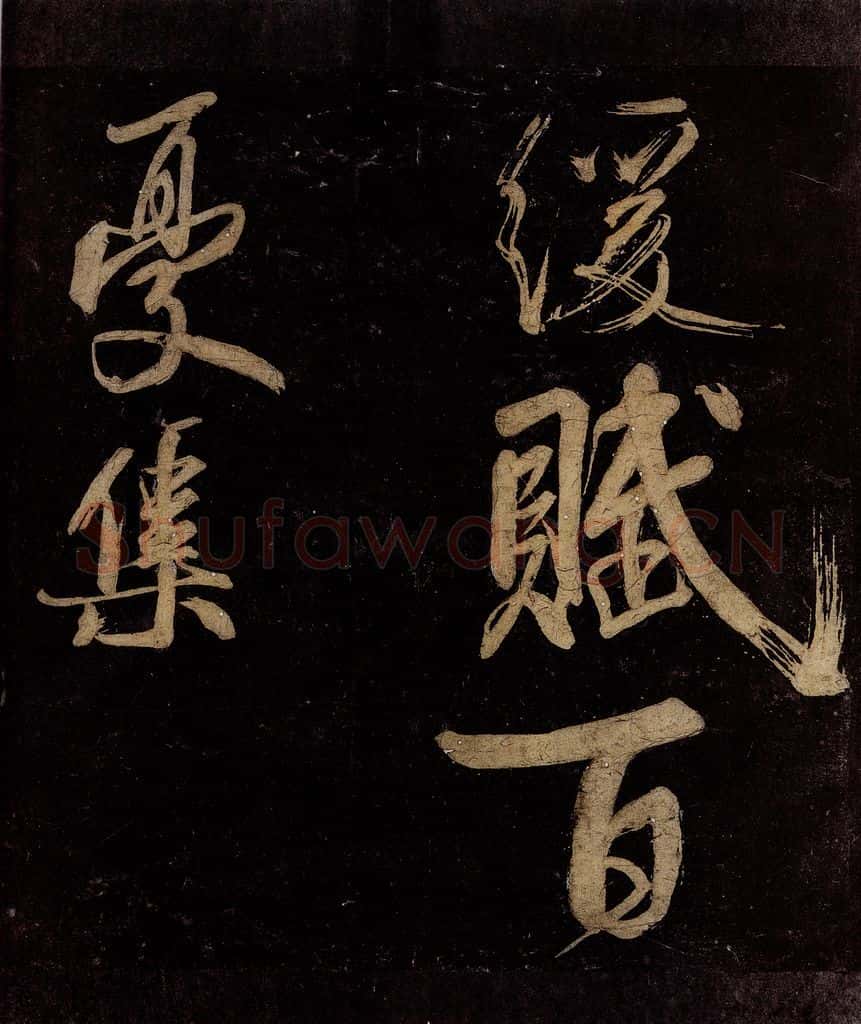 緩賦百
憂集
Shufawang.CN